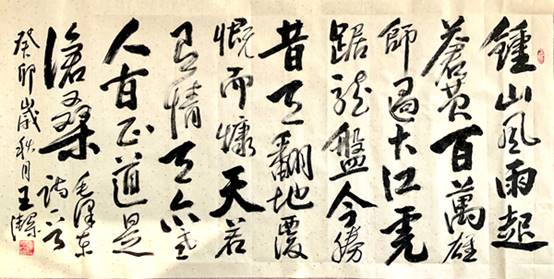 鍾山風雨起
蒼黄百萬雄
師過大江虎
踞龙盤今勝
昔天翻地覆
慨而慷天若
有情天亦老
人间正道是
滄桑
毛澤东
詩一首
癸卯歲秋月王潔